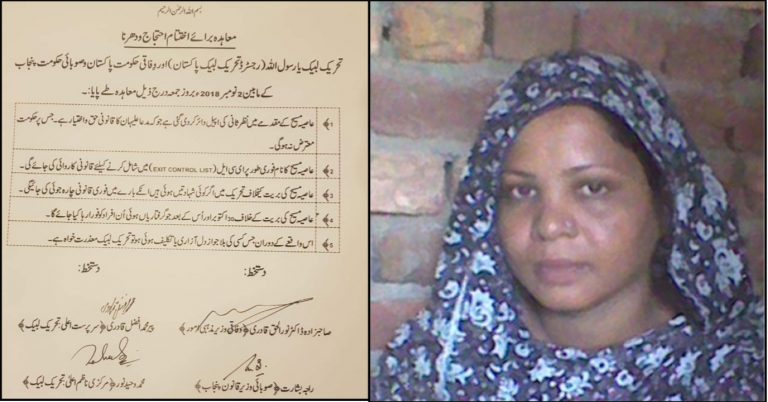 بسم اللہ الرحمٰن الرحیم
معاہدہ برائے اختتام احتجاج و دھرنا
تحریک لبیک یا رسول اللہ (رجسٹرڈ تحریک لبیک پاکستان) اور وفاقی حکومت پاکستان و صوبائی حکومت پنجاب
کے مابین 2 نومبر 2018ء بروز جمعہ درج ذیل معاہدہ طے پایا:۔
﴿1﴾ عاصیہ مسیح کے مقدمے میں نظر ثانی کی اپیل دائر کر دی گئی ہے جو کہ مدعا علیہان کا قانونی حق و اختیار ہے۔ جس پر حکومت
معترض نہ ہوگی۔
﴿2﴾ عاصیہ مسیح کا نام فوری طور پر ای سی ایل (EXIT CONTROL LIST) میں شامل کرنے کیلئے قانونی کاروائی کی جائے گی۔
﴿3﴾ عاصیہ مسیح کی بریت کے خلاف تحریک میں اگر کوئی شہادتیں ہوئی ہیں انکے بارے میں فوری قانونی چارہ جوئی کی جائیگی۔
﴿4﴾ عاصیہ مسیح کی بریت کے خلاف 30 اکتوبر اور اس کے بعد جو گرفتاریاں ہوئی اُن افراد کو فوراً رہا کیا جائے گا۔
﴿5﴾ اس واقعے کے دوران جس کسی کی بلا جواز دل آزاری یا تکلیف ہوئی ہو تو تحریک لبیک معذرت خواہ ہے۔
دستخط: دستخط:
صاحبزادہ ڈاکٹر نور الحق قادری ﴿وفاقی وزیر مذہبی امور﴾ پیر محمد افضل قادری ﴿سرپرست اعلیٰ تحریک لبیک﴾
راجہ بشارت ﴿صوبائی وزیر قانون پنجاب﴾ محمد وحید نور ﴿مرکزی ناظم اعلیٰ تحریک لبیک﴾